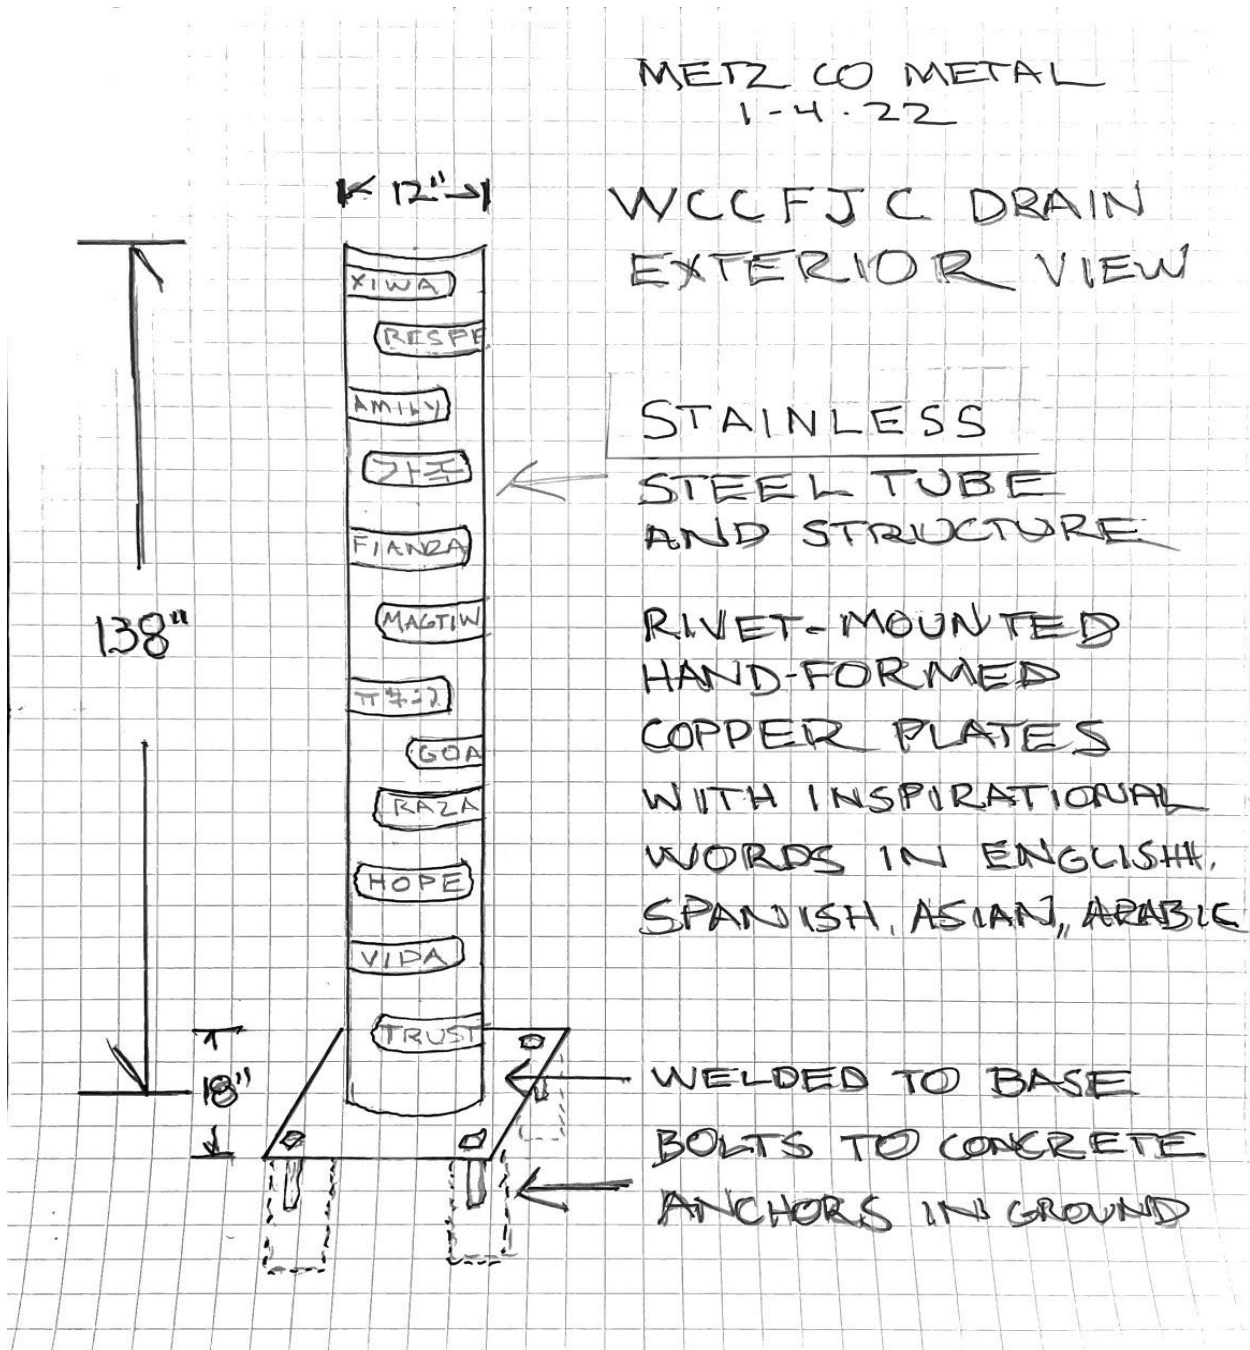 METZ CO METAL
1-4-22
12"
WCCFJC DRAIN
EXTERIOR VIEW
XIWA
RESPE
AMILY
가족
FIANZA
MAGTIW
GOA
RAZA
HOPE
VIDA
TRUST
138"
18"
STAINLESS
STEEL TUBE
AND STRUCTURE
RIVET-MOUNTED
HAND-FORMED
COPPER PLATES
WITH INSPIRATIONAL
WORDS IN ENGLISH,
SPANISH, ASIAN, ARABIC
WELDED TO BASE
BOLTS TO CONCRETE
ANCHORS IN GROUND